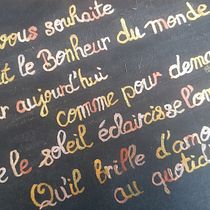 vous souhaite
le Bonheur du monde
aujourd'hui
comme pour
le soleil éclaircisse
Qu'il brille
au